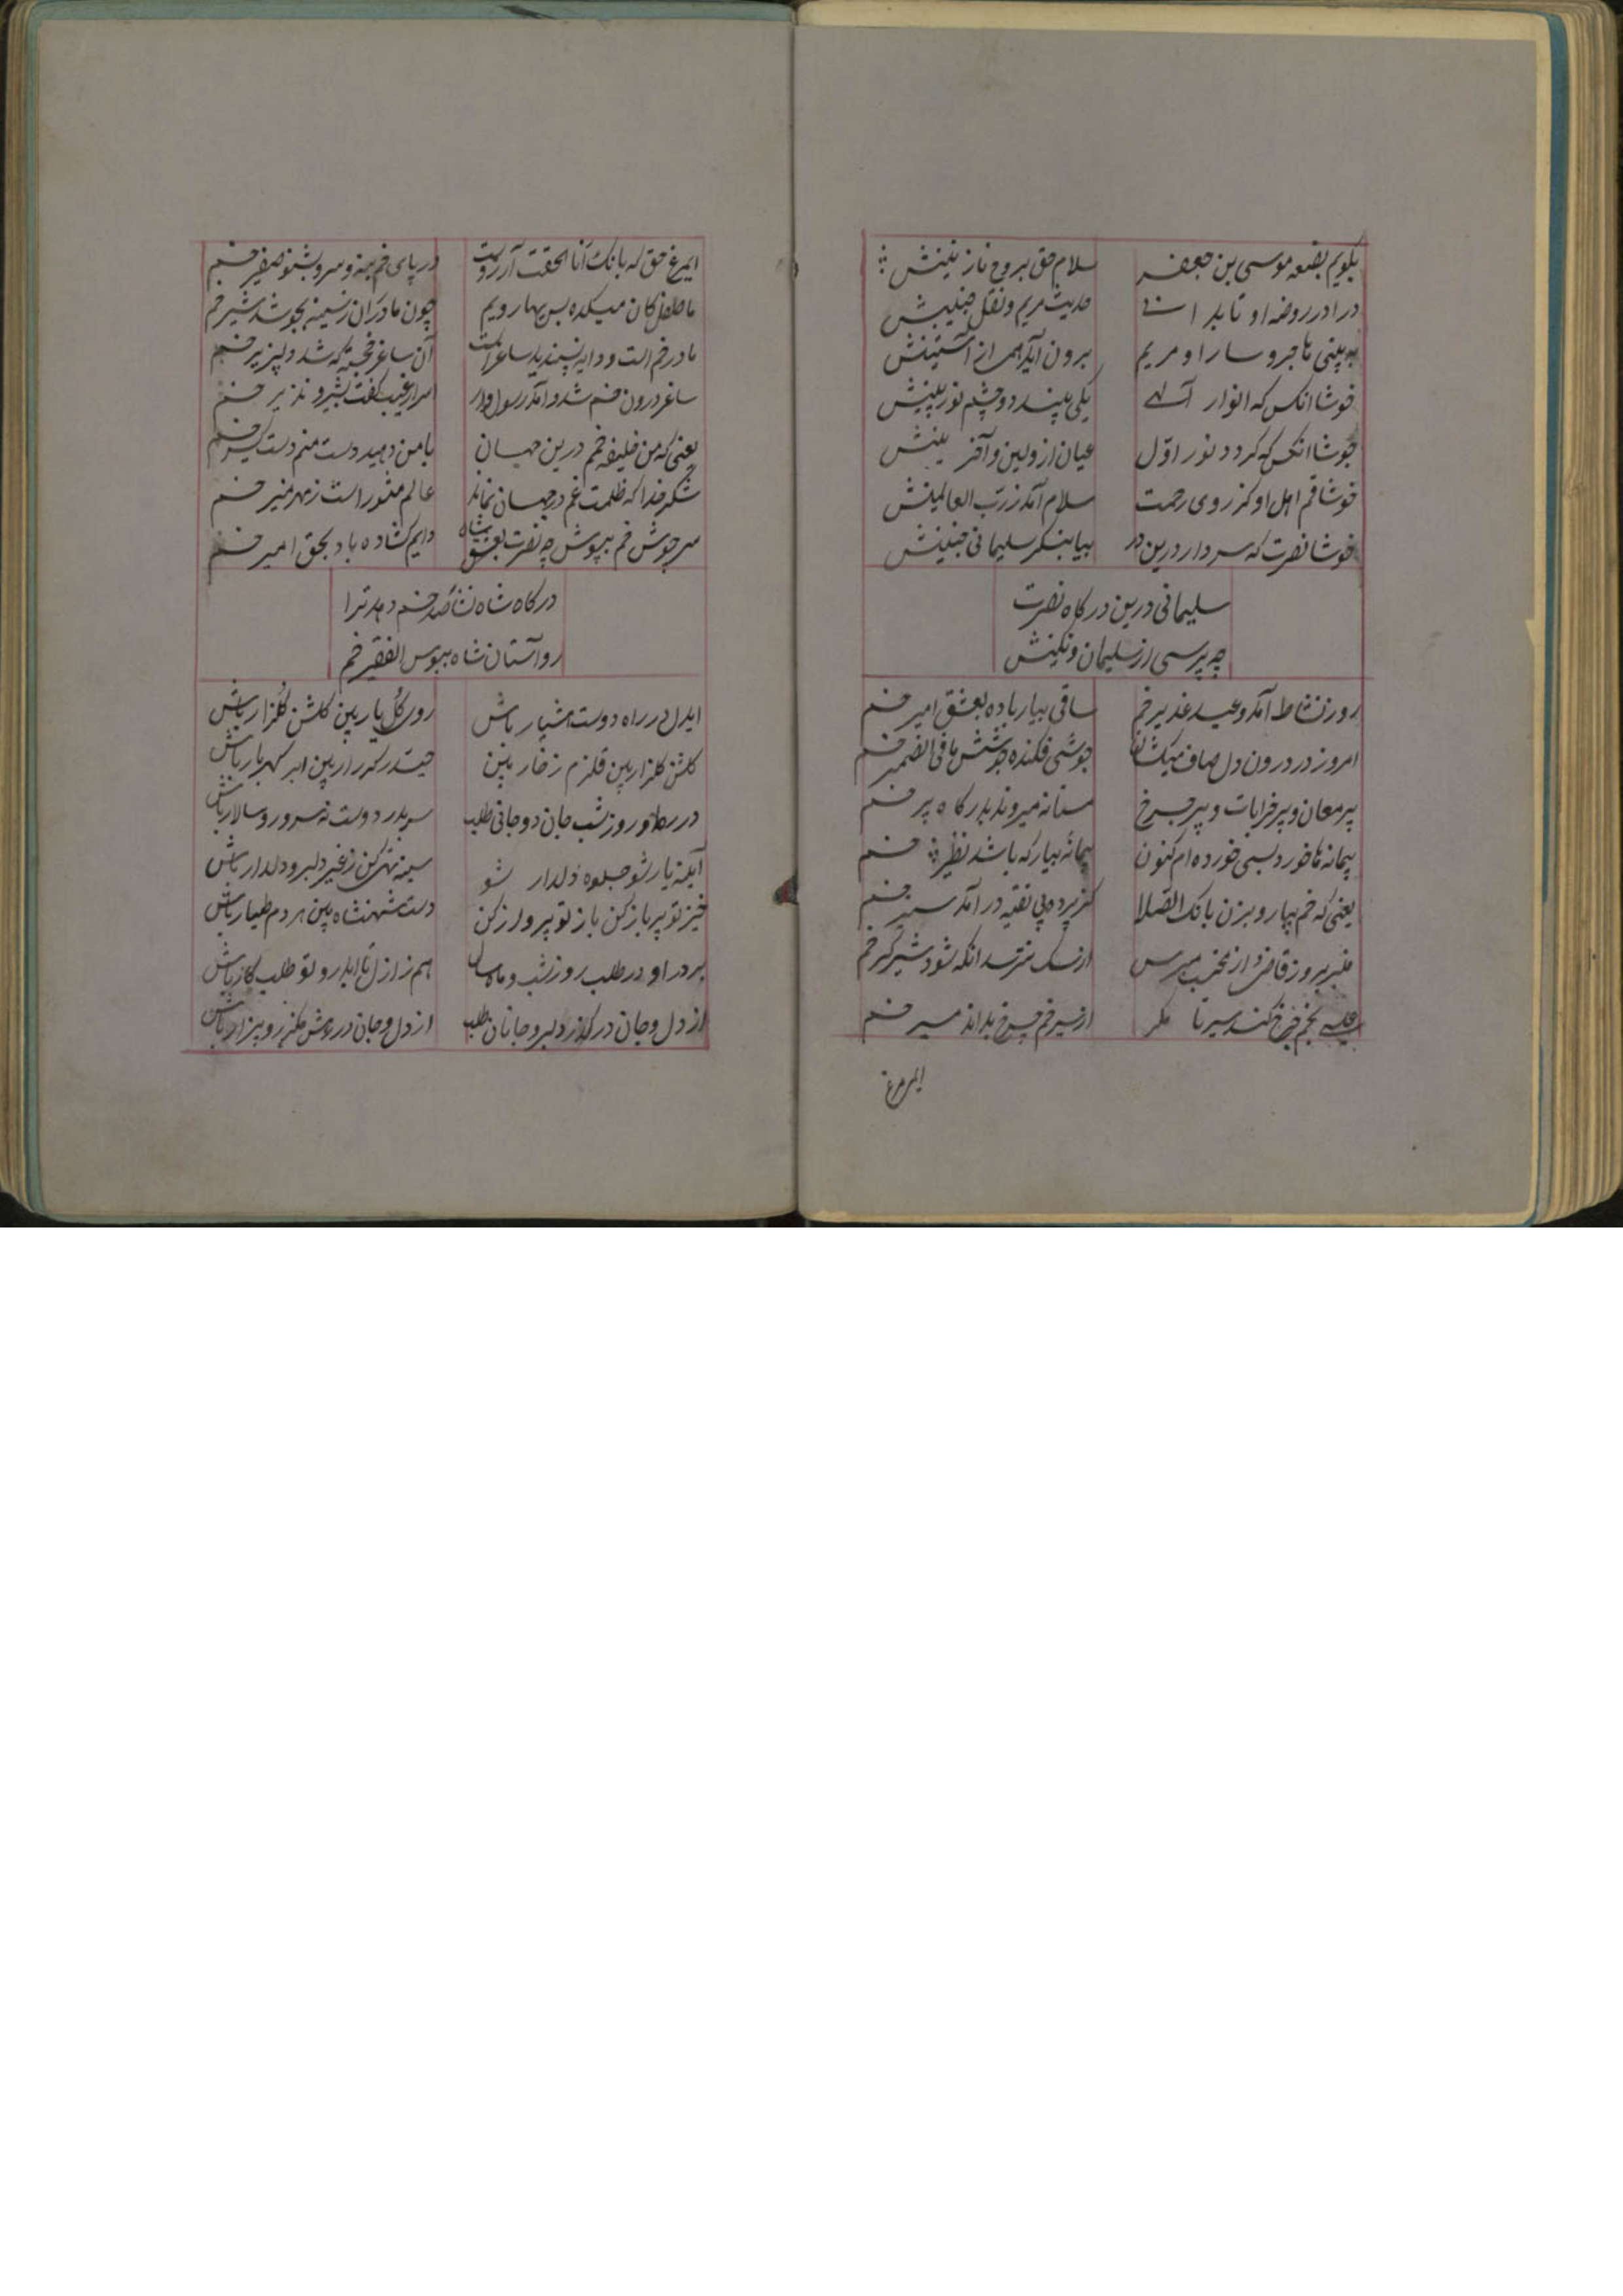 بگویم بضعه موسی بن جعفر
سلام حق بروح نازنینش
درا در روضه او تا بدانی
حدیث مریم و نقل جنینش
به بینی هاجر و سارا و مریم
برون آید همی از آستینش
خوشا انکس که انوار آلهی
یکی بیند دو چشم نور بینش
خوشا انکس که گردد نور اوّل
عیان از اولین و آخرینش
خوشا قم اهل او کز روی رحمت
سلام آمد ز رب العالمینش
خوشا نصرت که سر دارد درین در
بیا بنگر سلیمانی جنینش
سلیمانی درین درگاه نصرت
چه پرسی از سلیمان و نگینش
روز نشاط آمد و عید غدیر خم
ساقی بیار باده بعشق امیر خم
امروز درد درون دل صاف میکشان
جوشی فکنده جوشش ما فی الضمیر خم
پیر مغان و پیر خرابات و پیر چرخ
مستانه میروند بدرگاه پیر خم
پیمانه ها خورد بسی خورده ام کنون
پیمانه بیار که باشد نظیر خم
یعنی که خم بیار و بزن بانک الصلا
کز پرده بی نقیه در آمد سریر خم
منبر برو ز قاضی و از محتسب مپرس
از سک نترسد انکه شود شیر گیر خم
عیسی بخم چرخ کند سیر تا مگر
از سیر خم چرخ بداند مسیر خم
ایمرغ
ایمرغ حق که بانک انا الحقت آرزوست
در پای خم بنه و سر و بشنو صفیر خم
ما طفل کان میکده بس بهار و یم
چون مادران ز سینه بجوشد شیر خم
مادر خم است و دایه پسندیده ساغر است
آن ساغر خجسته که شد دلپذیر خم
ساغر درون خم شد و آمد رسول وار
اسرار غیب گفت بشیر و نذیر خم
یعنی که من خلیفه خم درین جهان
با من دهید دست منم دستگیر خم
شکر خدا که ظلمت غم در جهان نماند
عالم منور است ز مهر منیر خم
سر جوش خم بپوش چه نصرت بعشق شاه
دایم گشاده باد بحق امیر خم
درگاه شاه نشأه خم دهد ترا
رو آستان شاه ببوس الفقیر خم
ایدل در راه دوست هشیار باش
روی گل یار بین گلشن گلزار باش
گلشن گلزار بین قلزم زخار بین
حیدر کرار بین ابر گهربار باش
در ره او روز شب جان دو جانی طلب
سر بدر دوست نه سرور و سالار باش
آینه یار شو جلوه دلدار شو
سینه تهی کن ز غیر دلبر و دلدار باش
خیز تو پر باز کن باز تو پرواز کن
دست شهنشاه بین هر دم طیار باش
بر در او در طلب روز شب و ماه سال
هم ز ازل تا ابد رو تو طلب کار باش
از دل و جان در گذر دلبر و جانان طلب
از دل و جان در رهش مگذر و بیزار باش